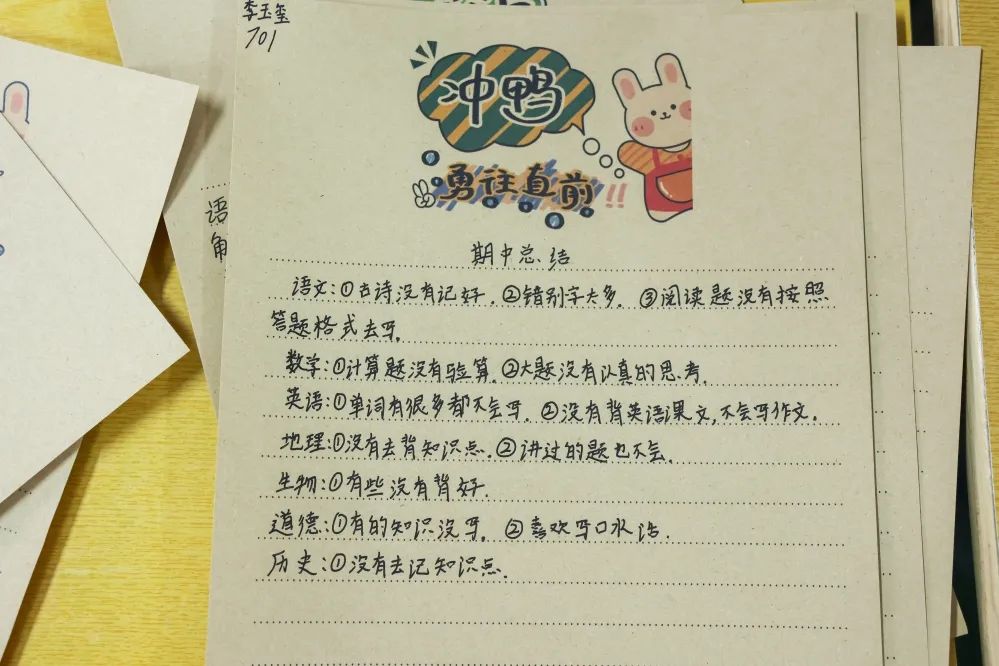 李玉玺
701
冲鸭
勇往直前!!
语
角
期中总结
语文:①古诗没有记好.②错别字太多.③阅读题没有按照
答题格式去写.
数学:①计算题没有验算.②大题没有认真的思考.
英语:①单词有很多都不会写.②没有背英语课文,不会写作文.
地理:①没有去背知识点.②讲过的题也不会.
生物:①有些没有背好.
道德:①有的知识没写.②喜欢写口水话.
历史:①没有去记知识点.